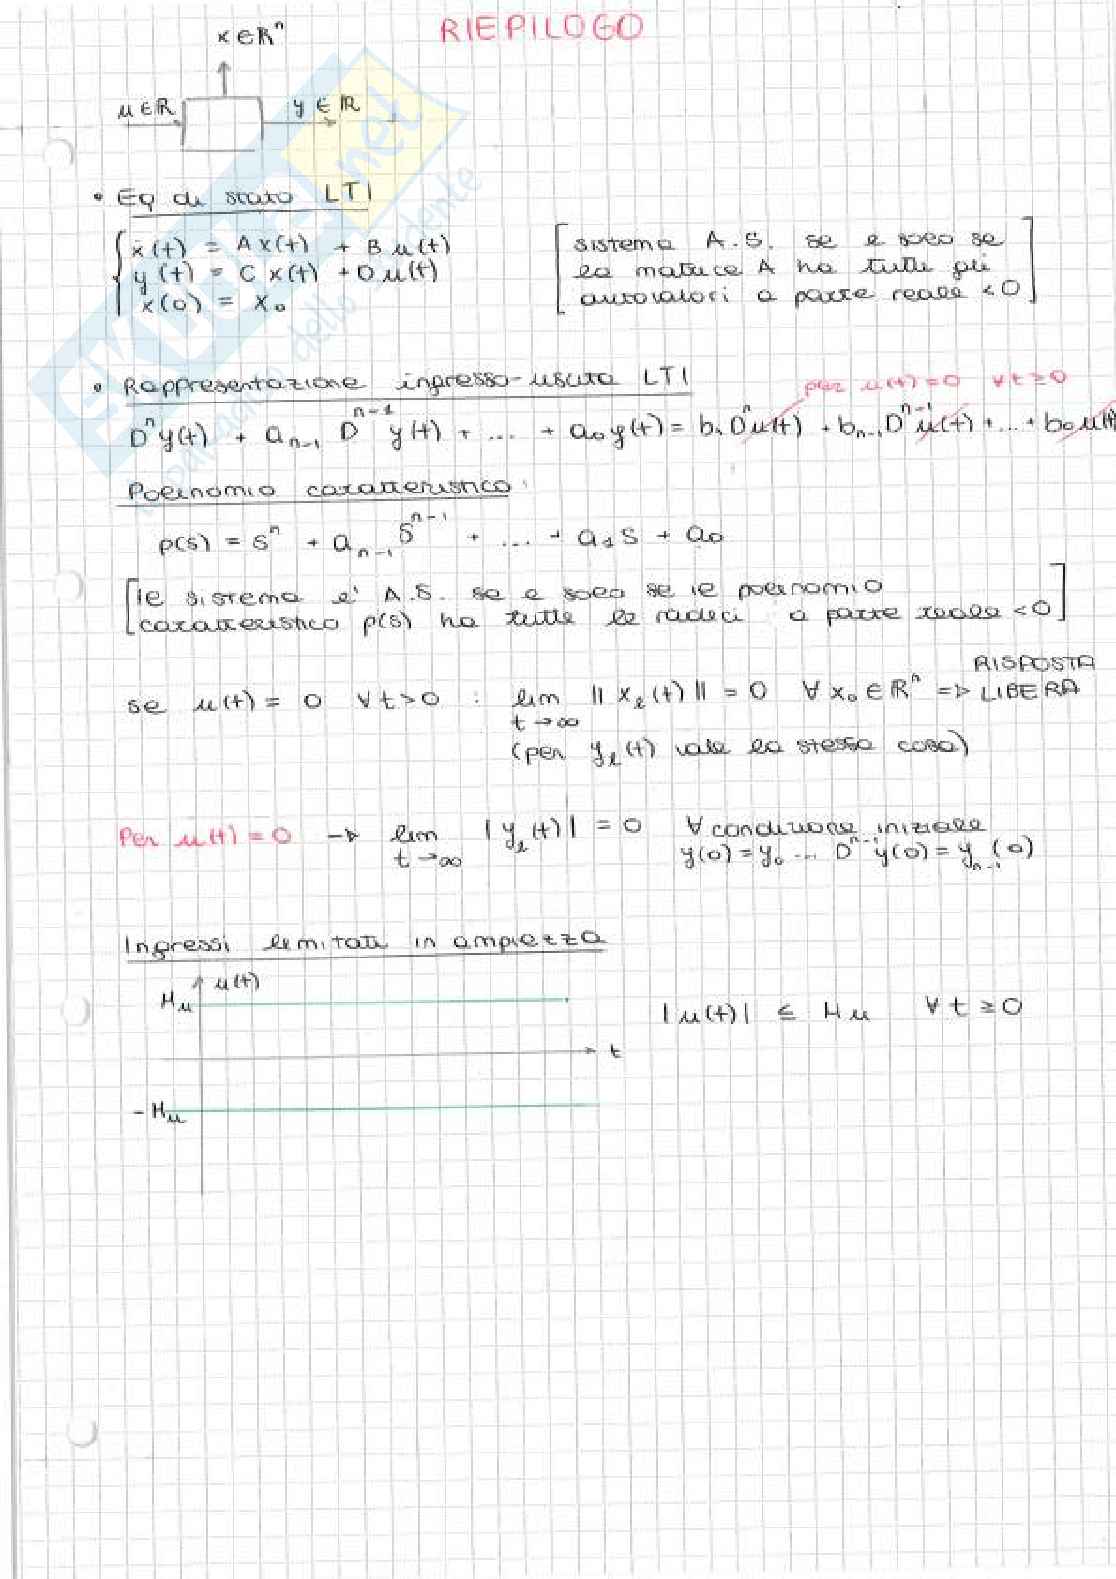 RIEPILOGO
x ∈ ℝⁿ
u ∈ ℝ
y ∈ ℝ
• Eq di stato LTI
ẋ(t) = A x(t) + B u(t)
y(t) = C x(t) + D u(t)
x(0) = x₀
[sistema A.S. se e solo se
la matrice A ha tutti gli
autovalori a parte reale < 0]
• Rappresentazione ingresso-uscita LTI
per u(t) = 0 ∀t ≥ 0
Dⁿy(t) + aₙ₋₁ Dⁿ⁻¹ y(t) + ... + a₀y(t) = bₙ Dⁿu(t) + bₙ₋₁ Dⁿ⁻¹ u(t) + ... + b₀ u(t)
Polinomio caratteristico:
p(s) = sⁿ + aₙ₋₁ sⁿ⁻¹ + ... + a₁ s + a₀
[il sistema e' A.S. se e solo se il polinomio
caratteristico p(s) ha tutte le radici a parte reale < 0]
RISPOSTA
se u(t) = 0 ∀t > 0 : lim ‖ xₗ(t) ‖ = 0 ∀ x₀ ∈ ℝⁿ => LIBERA
t → ∞
(per yₗ(t) vale la stessa cosa)
Per u(t) = 0 → lim | yₗ(t) | = 0 ∀ condizione iniziale
t → ∞ y(0) = y₀ ... Dⁿ⁻¹y(0) = yₙ₋₁(0)
Ingressi limitati in ampiezza
u(t)
Mᵤ
|u(t)| ≤ Mᵤ ∀ t ≥ 0
t
-Mᵤ